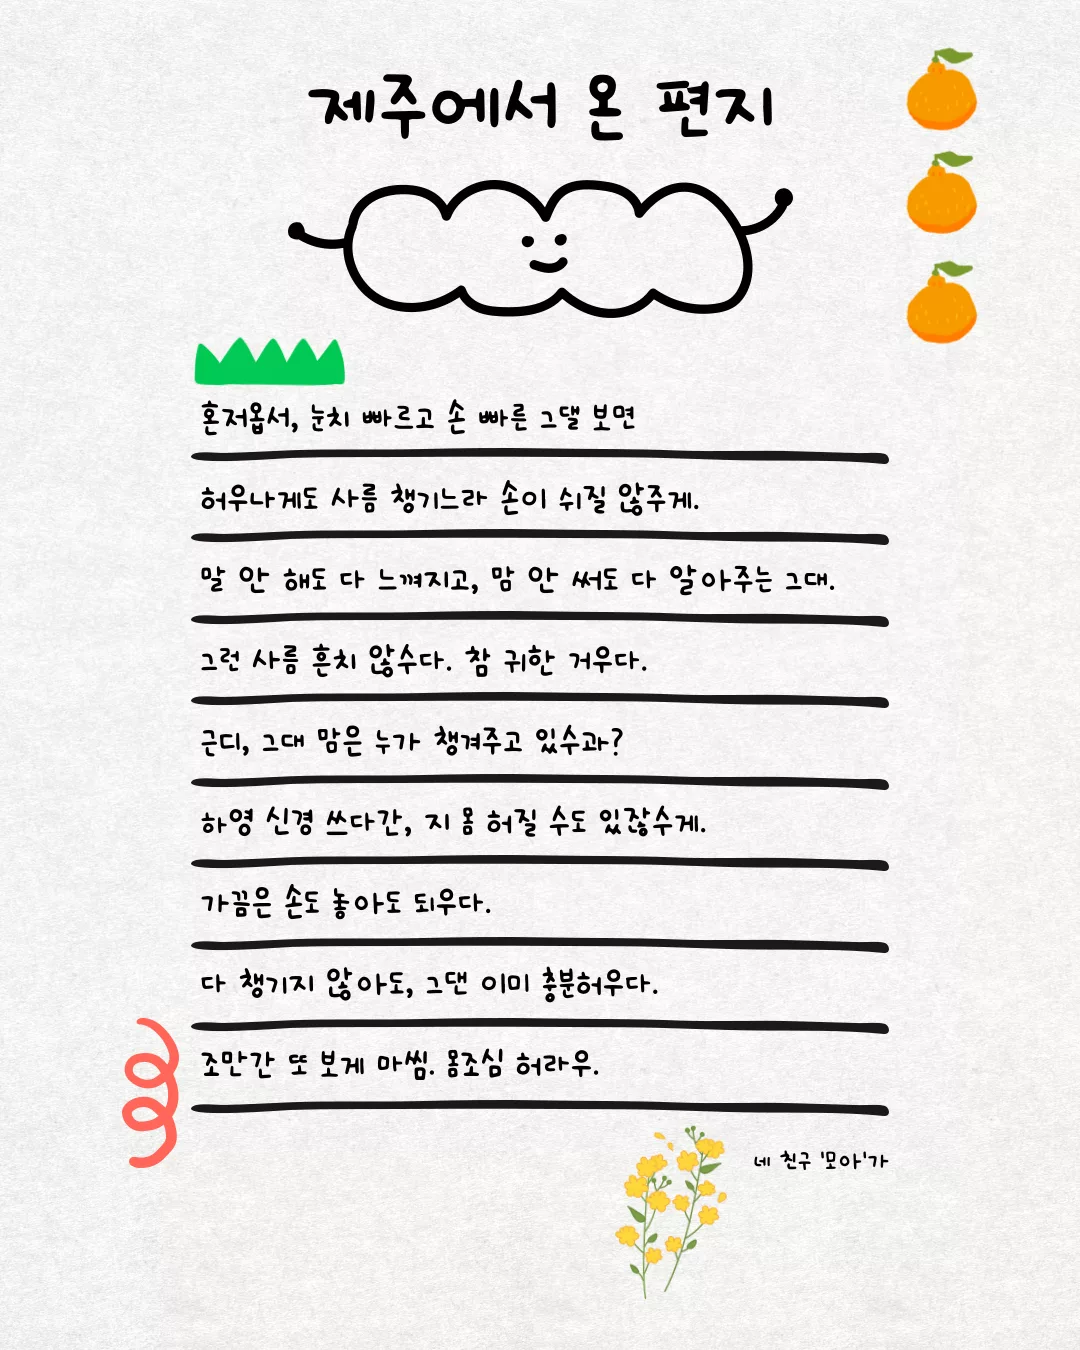 제주에서 온 편지
혼저옵서, 눈치 빠르고 손 빠른 그댈 보면
허우나게도 사름 챙기느라 손이 쉬질 않주게.
말 안 해도 다 느껴지고, 맘 안 써도 다 알아주는 그대.
그런 사름 흔치 않수다. 참 귀한 거우다.
근디, 그대 맘은 누가 챙겨주고 있수과?
하영 신경 쓰다간, 지 몸 허질 수도 있잖수게.
가끔은 손도 놓아도 되우다.
다 챙기지 않아도, 그댄 이미 충분허우다.
조만간 또 보게 마씸. 몸조심 허라우.
네 친구 '모아'가